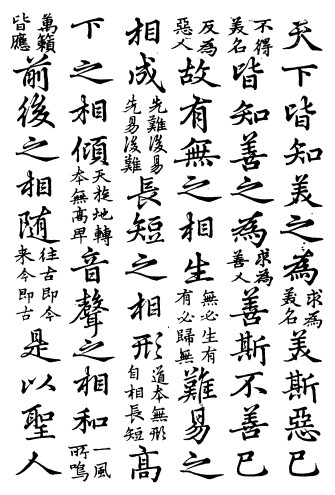 天下皆知美之為求為美名美斯惡已
不得美名皆知善之為求為善人善斯不善已
反為惡人故有無之相生無必生有有必歸無難易之
相成先難後易先易後難長短之相形道本無形自相長短高
下之相傾天旋地轉本無高卑音聲之相和一風所鳴
萬籟皆應前後之相随往古即今来今即古是以聖人